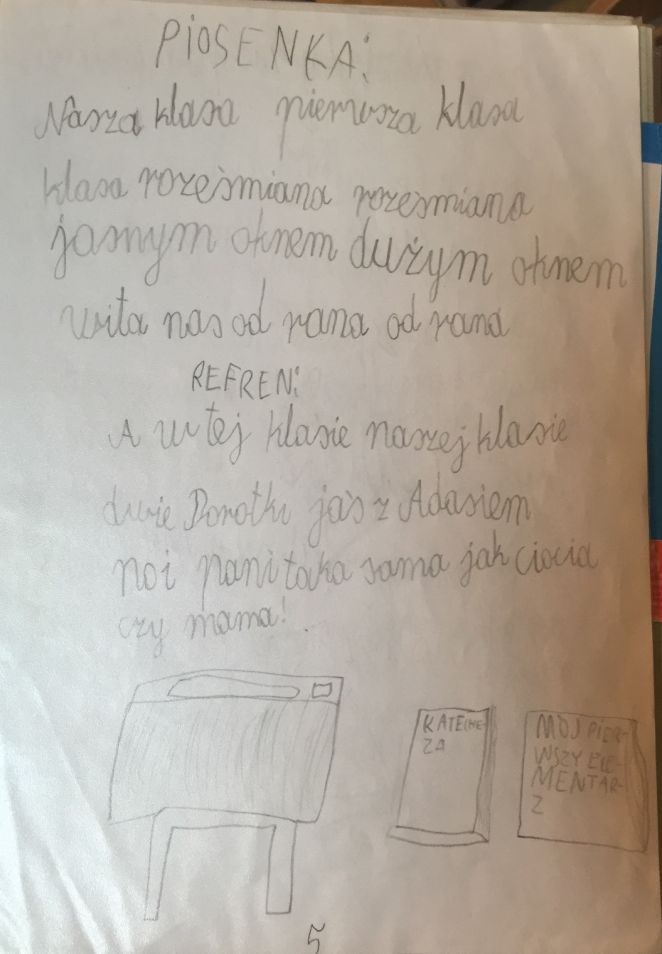 PIOSENKA:
Nasza klasa pierwsza klasa
klasa roześmiana rozesmiana
jasnym oknem dużym oknem
wita nas od rana od rana
REFREN:
A w tej klasie naszej klasie
dwie Dorotki jaś z Adasiem
no i pani taka sama jak ciocia
czy mama!
KATECHE-
ZA
MÓJ PIER-
WSZY ELE-
MENTAR-
Z
5